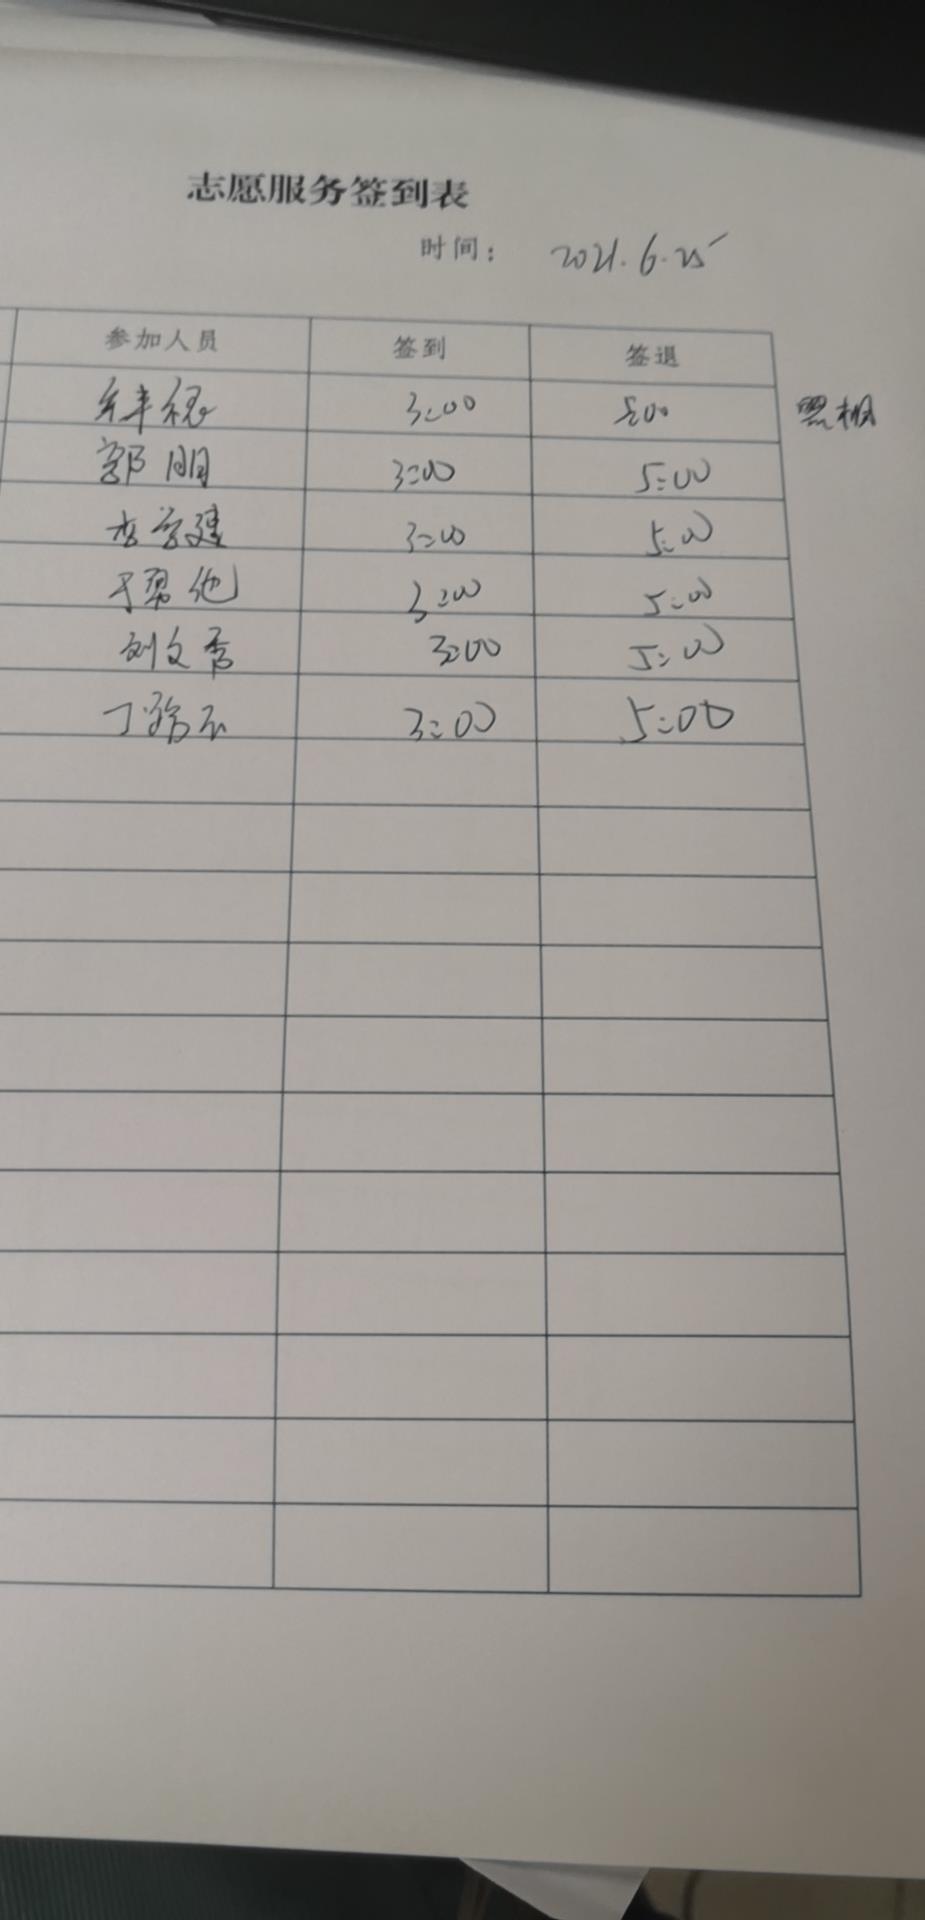 志愿服务签到表
时间： 2021.6.25
参加人员 签到 签退
3:00 5:00 照相
郭明 3:00 5:00
李学建 3:00 5:00
3:00 5:00
刘文秀 3:00 5:00
丁 3:00 5:00